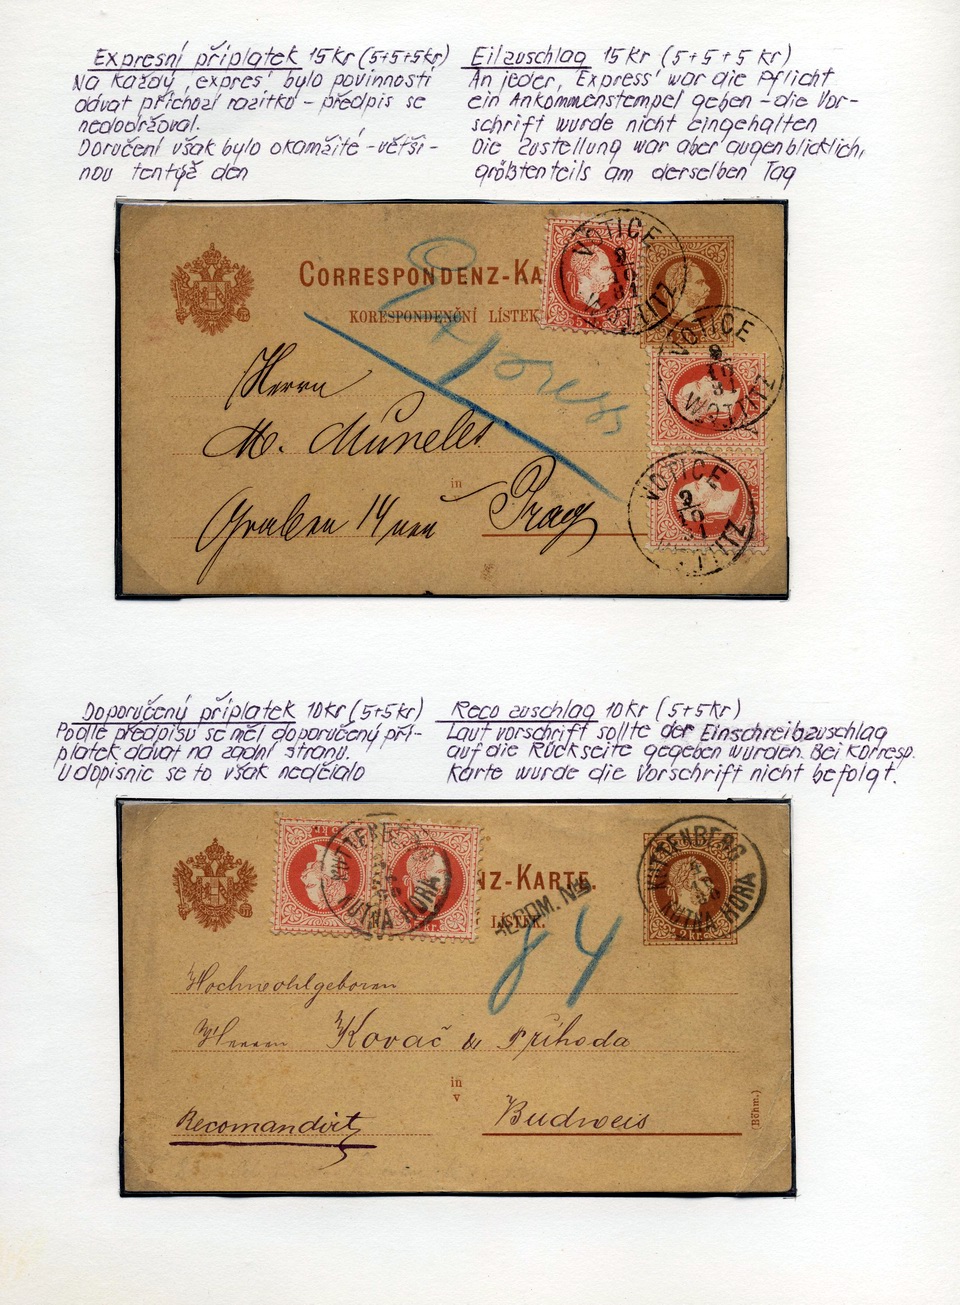 Expresní příplatek 15kr (5+5+5kr)
Na každý ‚expres‘ bylo povinností
dávat příchozí razítko - předpis se
nedodržoval.
Doručení však bylo okamžité - větši-
nou tentýž den
Eilzuschlag 15Kr (5+5+5 Kr)
An jeder ‚Express‘ war die Pflicht
ein Ankommenstempel geben - die Vor-
schrift wurde nicht eingehalten
Die Zustellung war aber augenblicklich,
größtenteils am derselben Tag
CORRESPONDENZ-KA
KORESPONDENČNÍ LÍSTEK
Express
VOTICE
9/10
81
WOTTITZ
VOTICE
9/10
81
WOTTITZ
VOTICE
9/10
Herrn
M. Muneles
in
Graben 14 neu Prag
Doporučený příplatek 10kr (5+5kr)
Podle předpisu se měl doporučený pří-
platek dávat na zadní stranu.
U dopisnic se to však nedělalo
Reco zuschlag 10Kr (5+5Kr)
Laut vorschrift sollte der Einschreibzuschlag
auf die Rückseite gegeben wurden. Bei Korresp.
Karte wurde die Vorschrift nicht befolgt.
NZ-KARTE.
LÍSTEK.
KUTTENBERG
KUTNA HORA
KUTTENBERG
KUTNA HORA
2 kr.
RECOM. No
84
Hochwohlgeboren
Herrn Kovač & Příhoda
in
v
Recomandirt Budweis
(Böhm.)